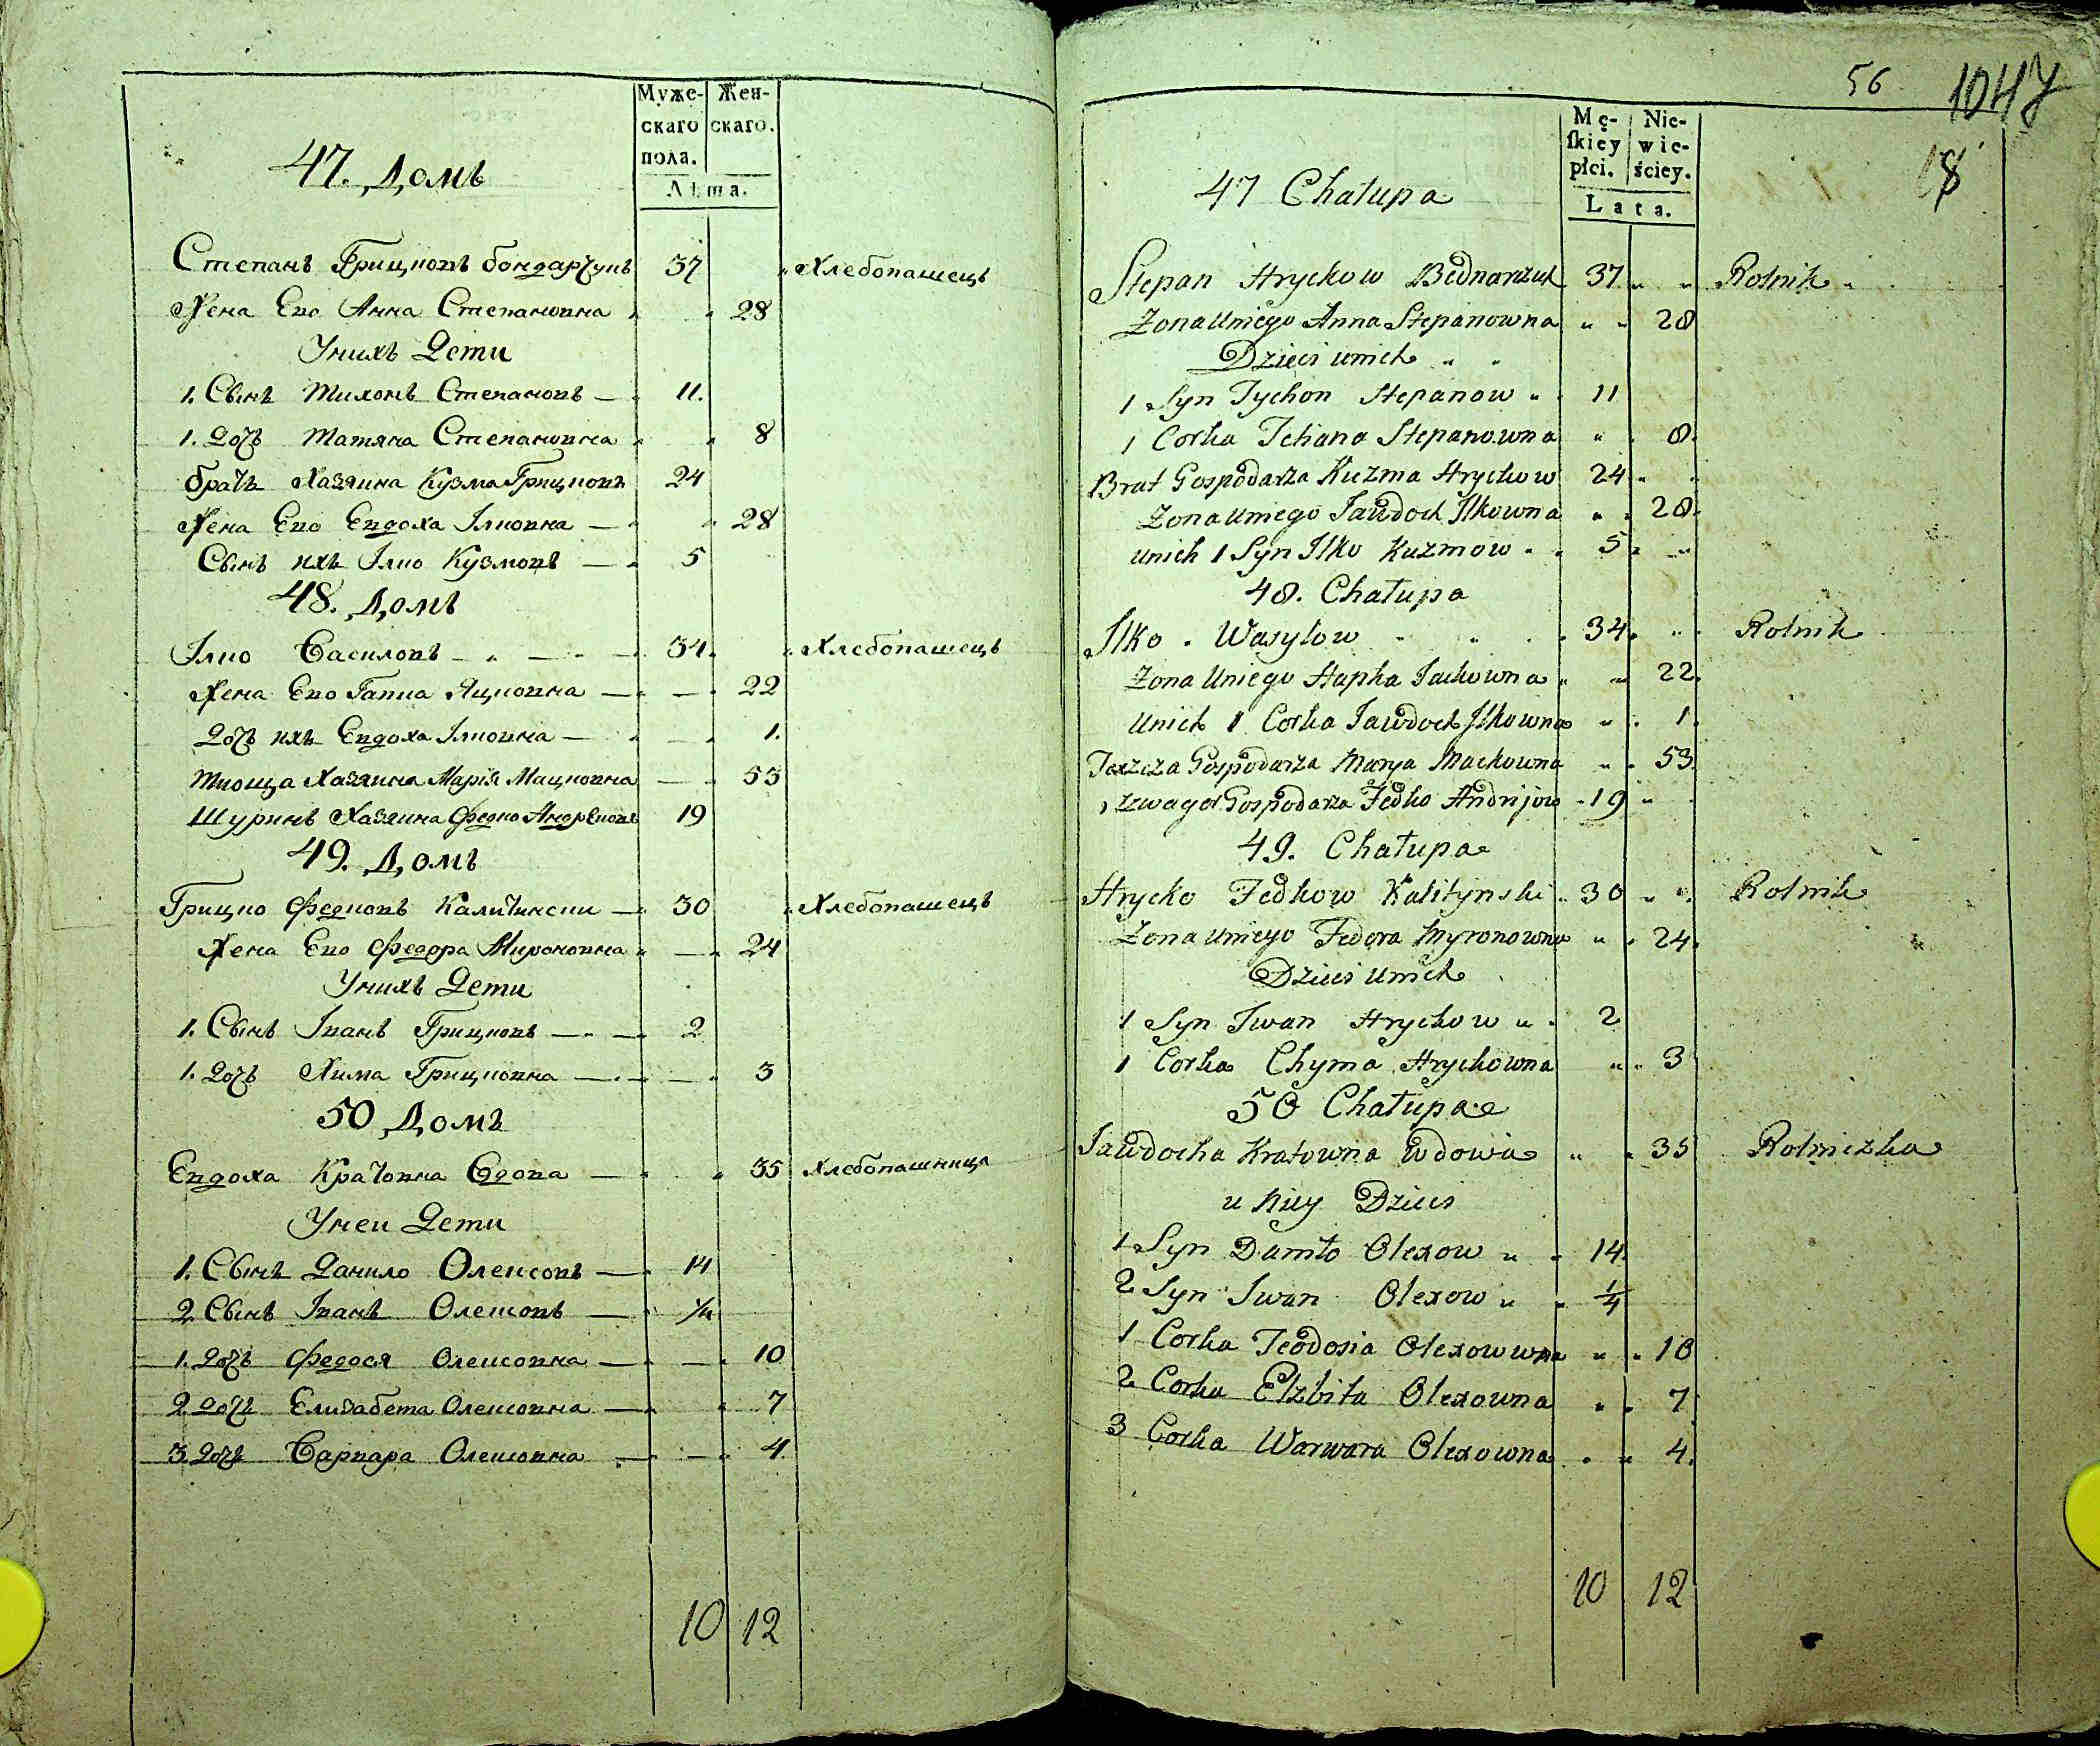 Муже- Жен-
скаго скаго.
пола.
Лѣта.
47. Домъ
Степанъ Грицковъ бондарчукъ 37 Хлебопашецъ
Жена Его Анна Степановна 28
Унихъ Дети
1. Сынъ Тихонъ Степановъ — 11.
1. Дочь Татяна Степановна 8
братъ Хазяина Кузма Грицковъ 24
Жена Его Евдоха Ілковна — 28
Сынъ ихъ Ілко Кузмовъ — 5
48. Домъ
Ілко Василовъ — 34. Хлебопашецъ
Жена Его Гапка Яцковна — 22
Дочь ихъ Евдоха Ілковна — 1.
Тиоща Хазяина Марія Мацковна — 53
Шуринъ Хазяина Федко Андреовъ 19
49. Домъ
Грицко Федковъ Калитински — 30 Хлебопашецъ
Жена Его Федора Мироновна — 24
Унихъ Дети
1. Сынъ Іванъ Грицковъ — 2
1. Дочь Хима Грицковна — 3
50 Домъ
Евдоха Кратовна Вдова — 35 Хлебопашница
Унеи Дети
1. Сынъ Данило Олексовъ — 14
2 Сынъ Іванъ Олексовъ — 1/4
1. Дочь Федося Олексовна — 10
2 Дочь Елизабета Олексовна — 7
3 Дочь Варвара Олексовна — 4.
10 12
56 1047
18
Mę- Nie-
ſkiey wie-
płci. ściey.
Lata.
47 Chałupa
Stepan Hryckow Bednarzuk 37 " " Rolnik
Zona Uniego Anna Stepanowna " " 28
Dzieci unich " "
1 Syn Tychon Stepanow " 11
1 Corka Tetiana Stepanowna " 8.
Brat Gospodarza Kuzma Hryckow 24 "
Zona Uniego Jawdoch Ilkowna " 28.
unich 1 Syn Ilko Kuzmow " 5 " "
48. Chałupa
Ilko Wasylow " 34 " Rolnik
Zona Uniego Hapka Jackowna " " 22.
Unich 1 Corka Jawdoch Ilkowna " 1.
Teszcza Gospodarza Marya Mackowna " 53.
1 Szwager Gospodarza Fedko Andrijow 19 "
49. Chałupa
Hrycko Fedkow Kalitynski 30 " " Rolnik
Zona Uniego Fedora Myronowna " 24.
Dzieci Unich
1 Syn Iwan Hryckow " 2
1 Corka Chyma Hryckowna " 3
50 Chałupa
Jawdocha Kratowna Wdowa " 35 Rolniczka
u Niey Dzieci
1 Syn Daniło Olexow " 14.
2 Syn Iwan Olexow " 1/4
1 Corka Teodosia Olexowwna " " 10
2 Corka Elzbita Olexowna " 7
3 Corka Warwara Olexowna " 4.
10 12